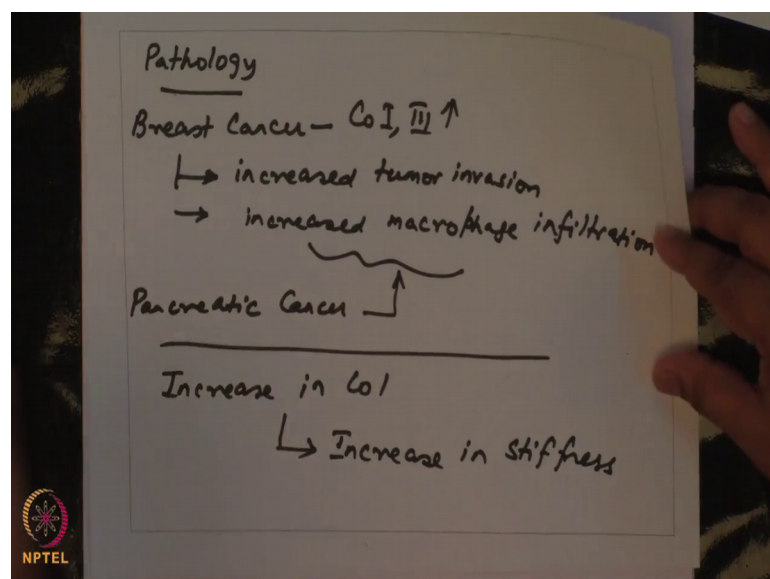 Pathology
Breast Cancer - Col, III ↑
→ increased tumor invasion
→ increased macrophage infiltration
Pancreatic Cancer
Increase in Col
→ Increase in stiffness
NPTEL